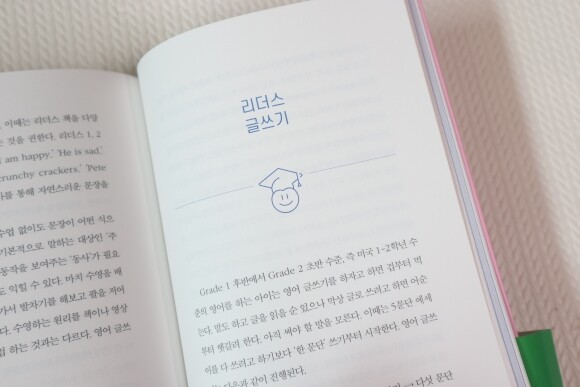 이때는 리더스 책을 다양
것을 권한다. 리더스 1, 2
am happy.' 'He is sad.'
crunchy crackers.' 'Pete
를 통해 자연스러운 문장을
수업 없이도 문장이 어떤 식으
기본적으로 말하는 대상인 '주
동작을 보여주는 '동사'가 필요
익힐 수 있다. 마치 수영을 배
가서 발차기를 해보고 팔을 저어
수영하는 원리를 책이나 영상
하는 것과는 다르다. 영어 글쓰
리더스
글쓰기
Grade 1 후반에서 Grade 2 초반 수준, 즉 미국 1~2학년 수
준의 영어를 하는 아이는 영어 글쓰기를 하자고 하면 겁부터 먹
는다. 말도 하고 글을 읽을 순 있으나 막상 글로 쓰려고 하면 어순
부터 헷갈려 한다. 아직 써야 할 말을 모른다. 이때는 5문단 에세
이를 다 쓰려고 하기보다 '한 문단' 쓰기부터 시작한다. 영어 글쓰
다음과 같이 진행된다.
다섯 문단